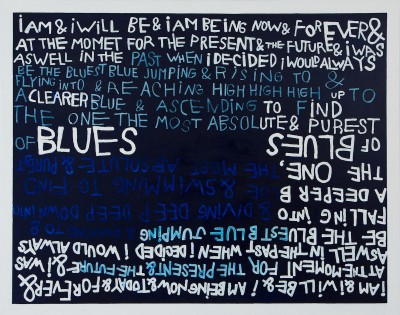 i AM & i WILL BE & i AM BEING NOW & FOR EVER &
AT THE MOMET FOR THE PRESENT & THE FUTURE & i WAS
ASWELL IN THE PAST WHEN i DECIDED i WOULD ALWAYS
BE THE BLUEST BLUE JUMPING & RISING TO &
FLYING INTO & REACHING HIGH HIGH HIGH UP TO
A CLEARER BLUE & ASCENDING TO FIND
THE ONE THE MOST ABSOLUTE & PUREST
OF BLUES
i AM & i WILL BE & i AM BEING NOW & TODAY & FOREVER &
AT THE MOMENT FOR THE PRESENT & THE FUTURE & i WAS
ASWELL IN THE PAST WHEN i DECIDED i WOULD ALWAYS
BE THE BLUEST BLUE JUMPING & TO &
FALLING INTO & DIVING DEEP DOWN INTO
A DEEPER & SWIMMING TO FIND
THE ONE, THE MOST ABSOLUTE & PUREST
OF BLUES